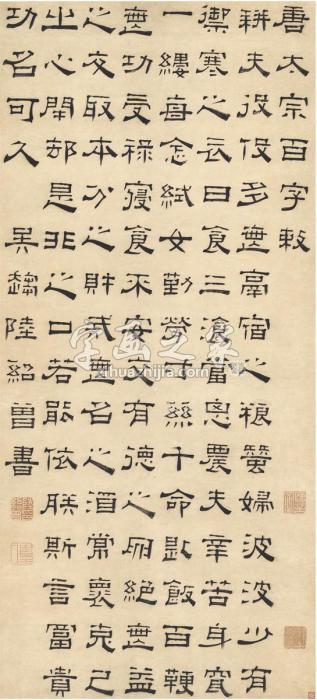 唐太宗百字敕
耕夫役役多無鬲宿之粮蠶婦波波少有
禦寒之衣日食三飡當思農夫辛苦身穿
一縷每念織女勤勞寸絲千命匙飯百鞭
無功受祿寢食不安交有德之朋絕無益
之友取本分之財戒無名之酒常懷克己
之心閉却是非之口若能依朕斯言冨貴
功名可久 吳趨陸紹曾書
字画之家
xihuazhijia.com